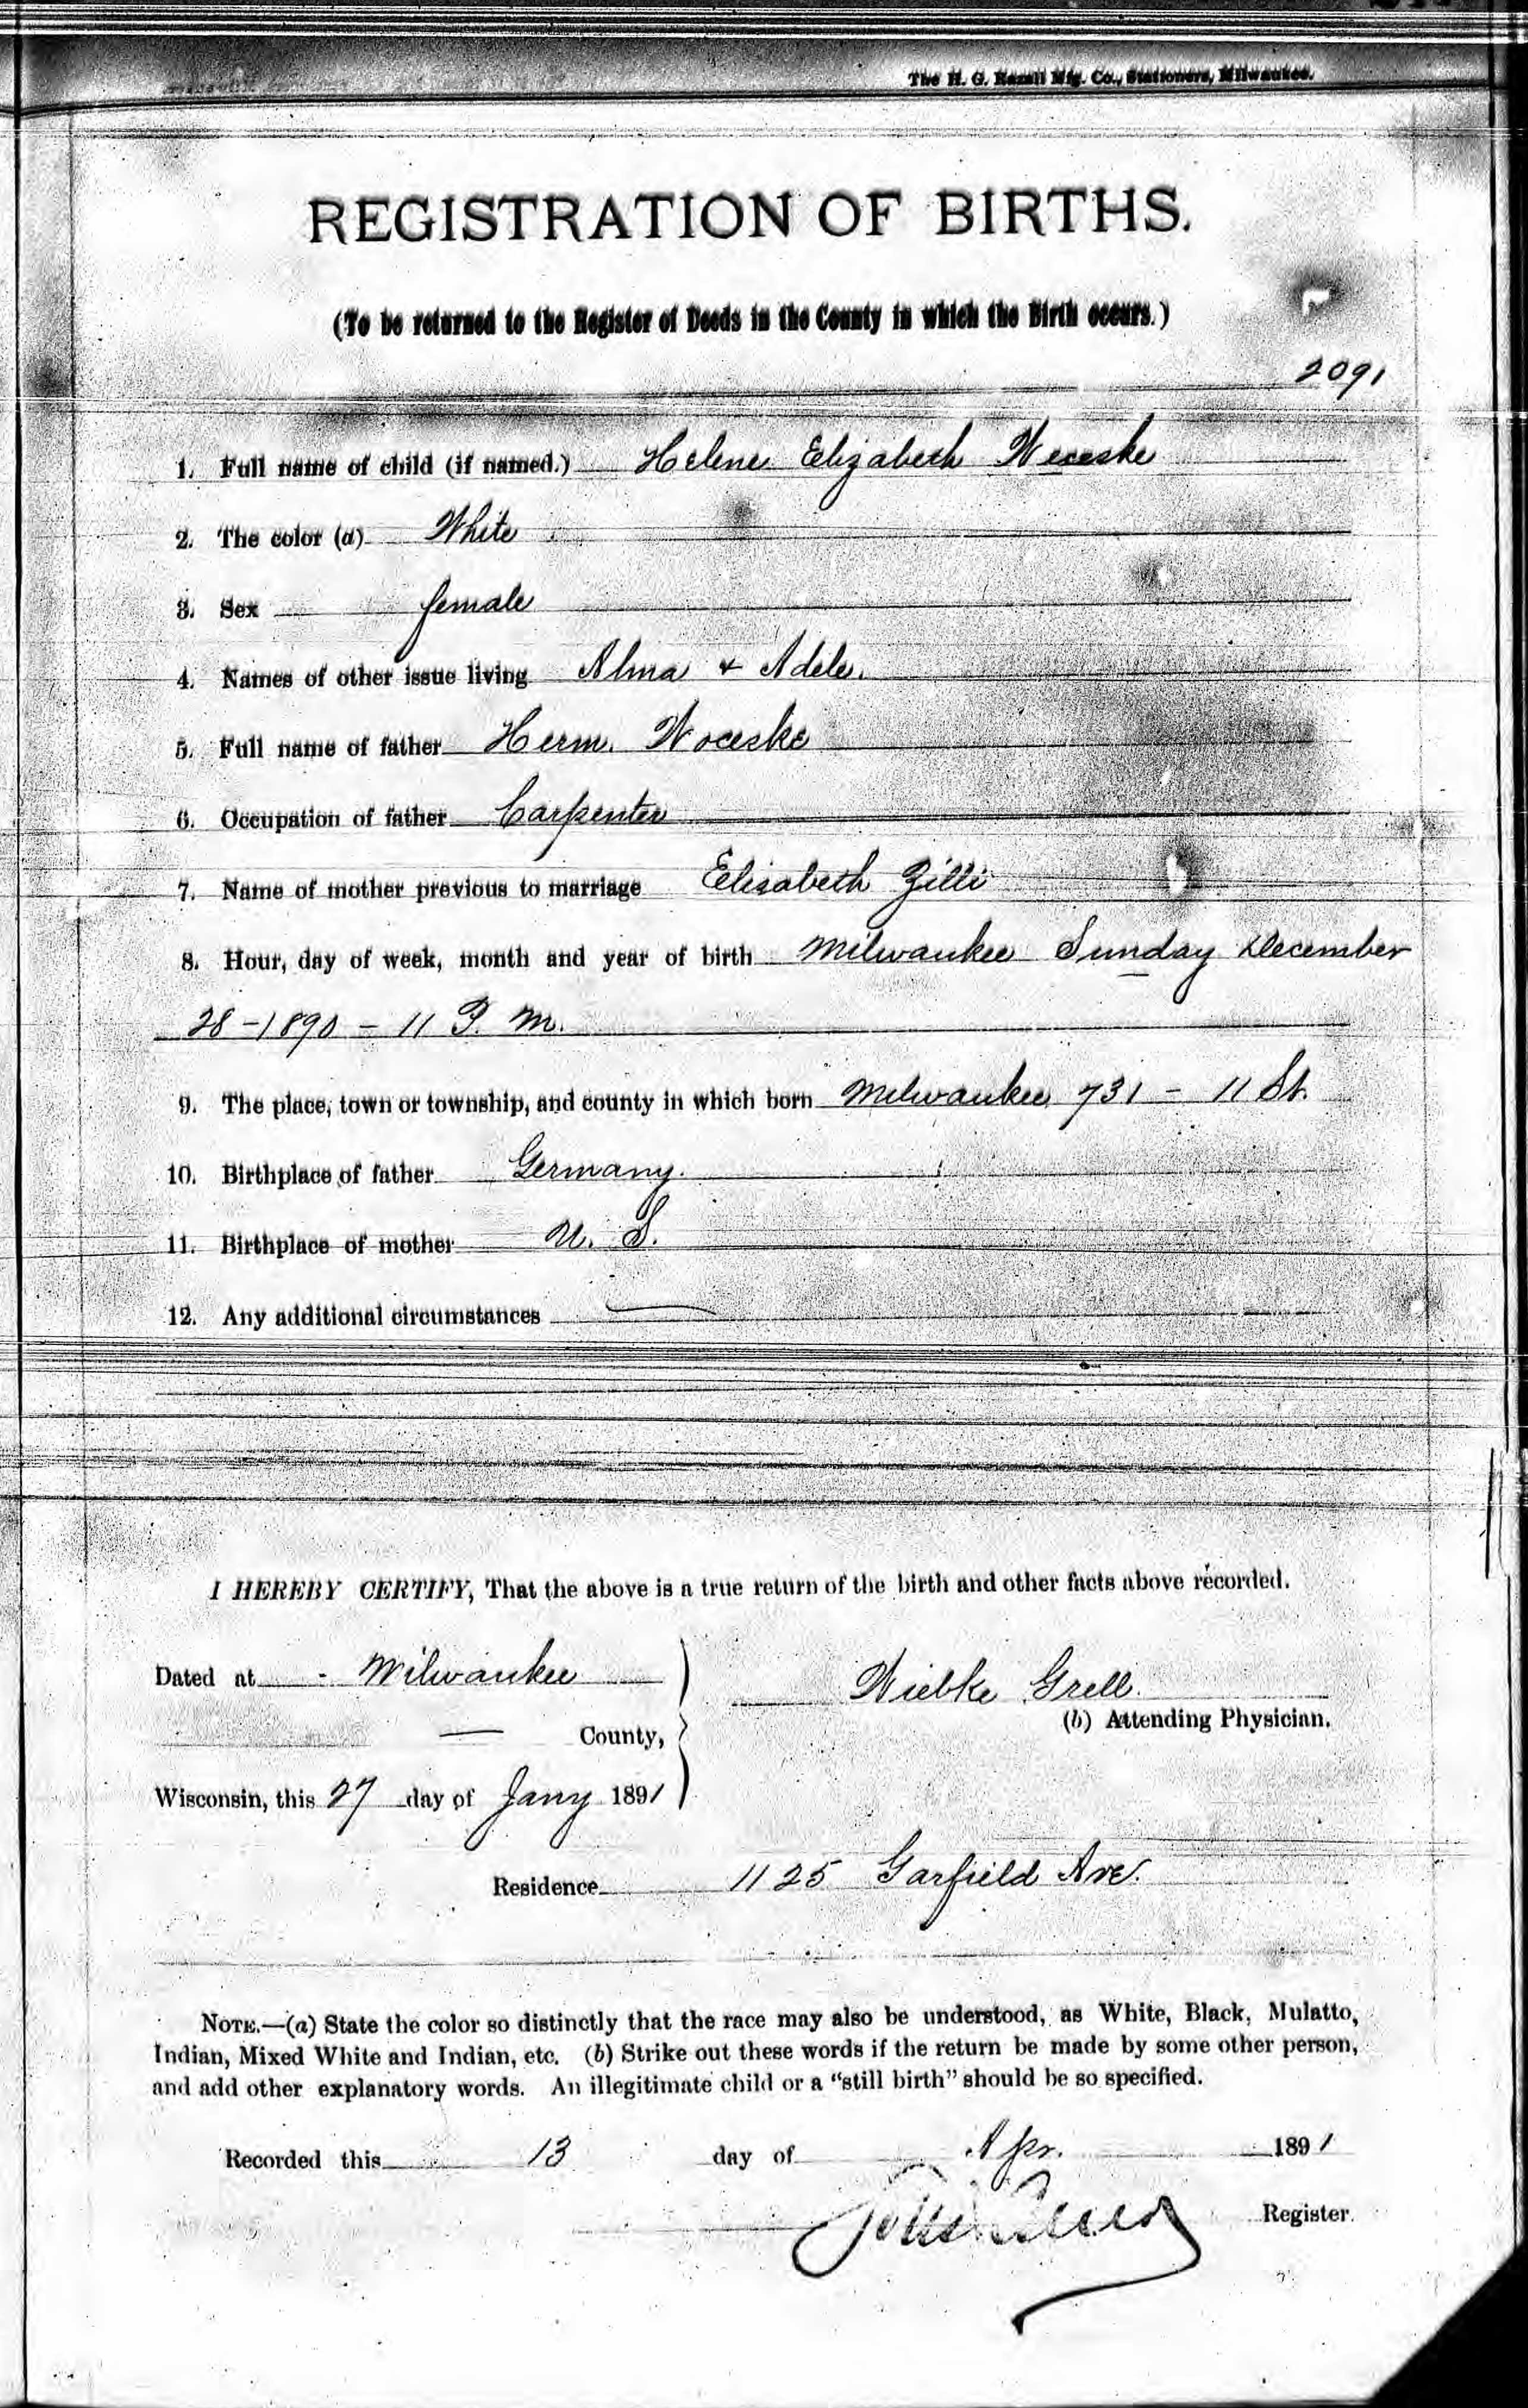 The H. G. Razall Mfg. Co., Stationers, Milwaukee.
REGISTRATION OF BIRTHS.
(To be returned to the Register of Deeds in the County in which the Birth occurs.)
2091
1. Full name of child (if named.) Helene Elizabeth Weceske
2. The color (a) White
3. Sex female
4. Names of other issue living Alma & Adele.
5. Full name of father Herm. Woceske
6. Occupation of father Carpenter
7. Name of mother previous to marriage Elisabeth Zilli
8. Hour, day of week, month and year of birth Milwaukee Sunday December
28-1890 - 11 P. M.
9. The place, town or township, and county in which born Milwaukee 731 - 11 St.
10. Birthplace of father Germany.
11. Birthplace of mother U. S.
12. Any additional circumstances
I HEREBY CERTIFY, That the above is a true return of the birth and other facts above recorded.
Dated at - Milwaukee
Wiebke Grell.
(b) Attending Physician.
County,
Wisconsin, this 27 day of Jany 1891
Residence 1125 Garfield Ave.
NOTE.—(a) State the color so distinctly that the race may also be understood, as White, Black, Mulatto,
Indian, Mixed White and Indian, etc. (b) Strike out these words if the return be made by some other person,
and add other explanatory words. An illegitimate child or a "still birth" should be so specified.
Recorded this 13 day of Apr. 1891
Register.